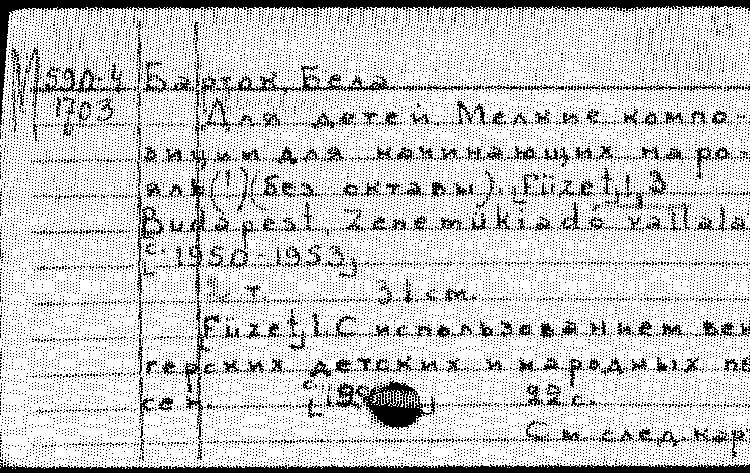 М 590-4 Барток, Бела
1703 Для детей Мелкие компо-
зиции для начинающих на ро-
яль (!) (без октавы). [Füzet] 1, 3
Budapest, Zeneműkiadó vállala
[c. 1950-1953]
т. 31 см.
[Füzet] 1. С использованием вен
герских детских и народных пе
сен. 22 с.
См. след. кар